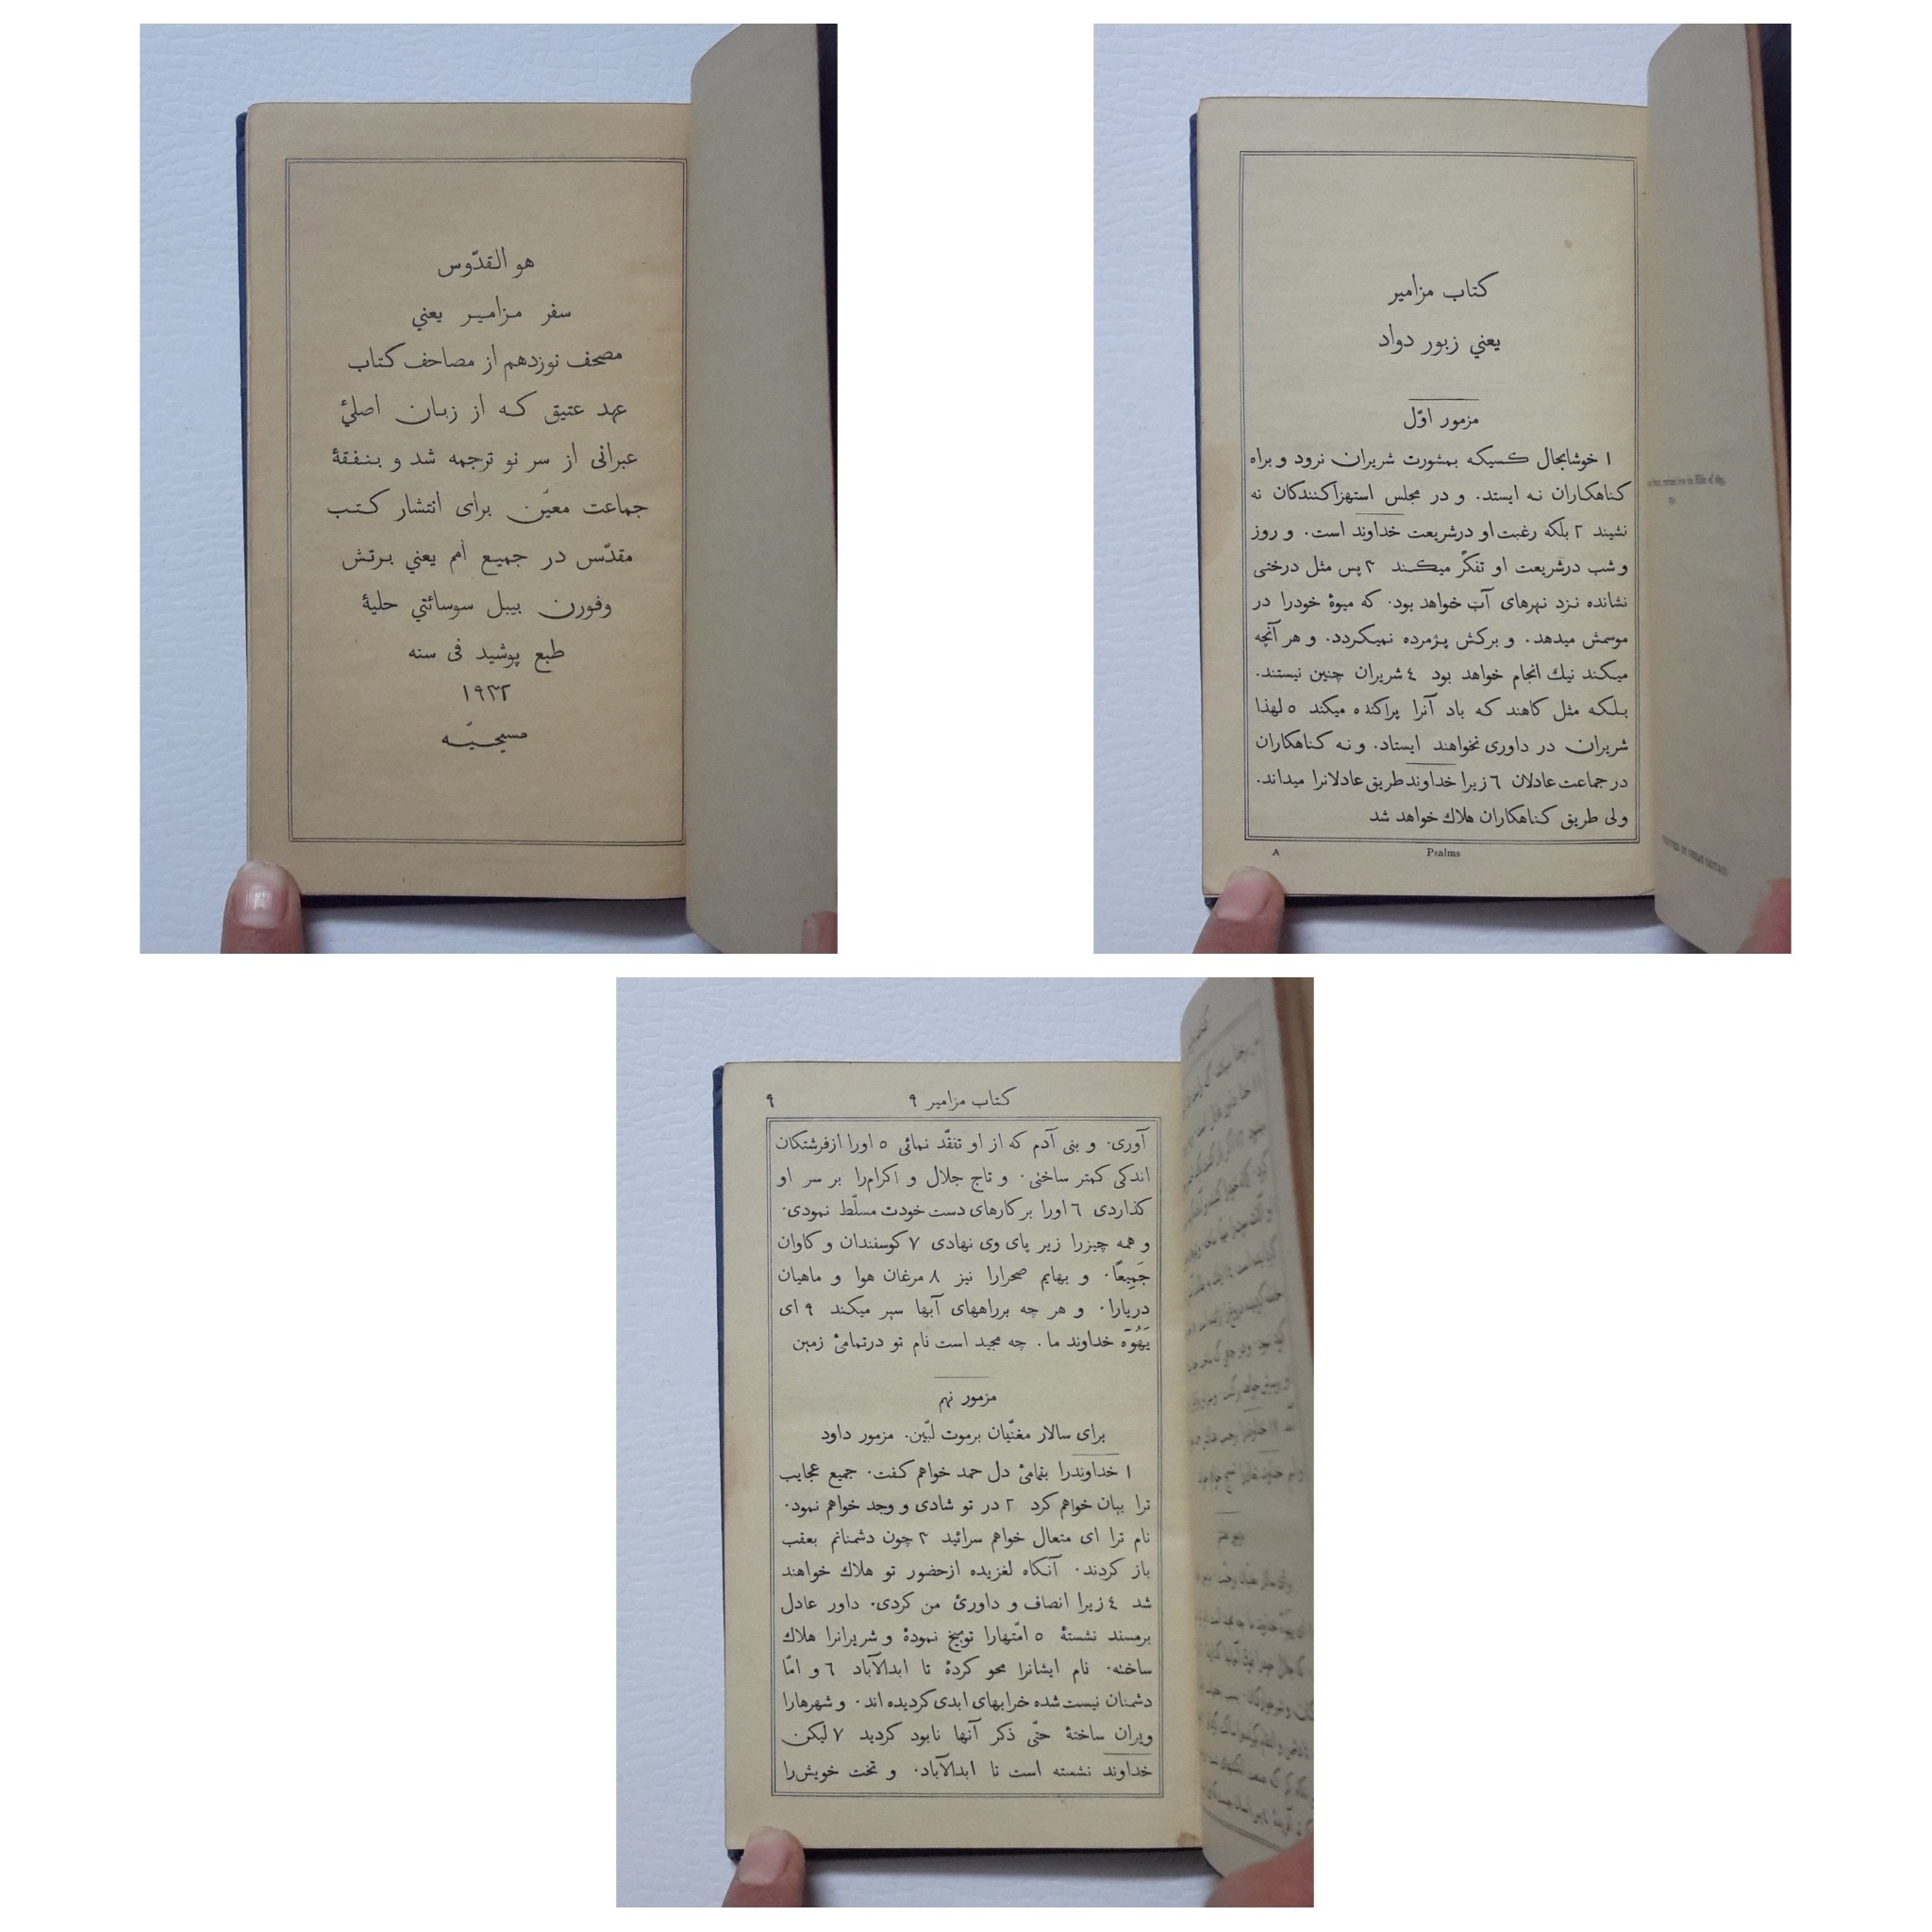 هو القدّوس
سفر مزامیر یعني
مصحف نوزدهم از مصاحف کتاب
عهد عتیق که از زبان اصلیٔ
عبرانی از سر نو ترجمه شد و بنفقهٔ
جماعت معیّن برای انتشار کتب
مقدّس در جمیع اُمم یعني برتش
وفورن بیبل سوسائتي حلیهٔ
طبع پوشید فی سنه
۱۹۳۲
مسیحیّه
کتاب مزامیر
یعني زبور دواد
مزمور اوّل
۱ خوشابحال کسیکه بمشورت شریران نرود و براه
کناهکاران نه ایستد. و در مجلس استهزاکنندکان نه
نشیند ۲ بلکه رغبت او درشریعت خداوند است. و روز
و شب درشریعت او تفکّر میکند ۳ پس مثل درختی
نشانده نزد نهرهای آب خواهد بود. که میوهٔ خودرا در
موسمش میدهد. و برکش پژمرده نمیکردد. و هر آنچه
میکند نیك انجام خواهد بود ٤ شریران چنین نیستند.
بلکه مثل کاهند که باد آنرا پراکنده میکند ٥ لهذا
شریران در داوری نخواهند ایستاد. و نه کناهکاران
در جماعت عادلان ٦ زیرا خداوند طریق عادلانرا میداند.
ولی طریق کناهکاران هلاك خواهد شد
A Psalms
کتاب مزامیر ۹ ۹
آوری. و بنی آدم که از او تفقّد نمائی ٥ اورا ازفرشتکان
اندکی کمتر ساختی. و تاج جلال و اکرام‌را بر سر او
کذاردی ٦ اورا برکارهای دست خودت مسلّط نمودی.
و همه چیزرا زیر پای وی نهادی ۷ کوسفندان و کاوان
جَمِیعًا. و بهایم صحرارا نیز ۸ مرغان هوا و ماهیان
دریارا. و هر چه برراههای آبها سیر میکند ۹ ای
یَهُوَه خداوند ما. چه مجید است نام تو درتمامیٔ زمین
مزمور نهم
برای سالار مغنّیان برموت لبّین. مزمور داود
۱ خداوندرا بتمامیٔ دل حمد خواهم کفت. جمیع عجایب
ترا بیان خواهم کرد ۲ در تو شادی و وجد خواهم نمود.
نام ترا ای متعال خواهم سرائید ۳ چون دشمنانم بعقب
باز کردند. آنکاه لغزیده ازحضور تو هلاك خواهند
شد ٤ زیرا انصاف و داوریٔ من کردی. داور عادل
برمسند نشستهٔ ٥ امّتهارا توبیخ نمودهٔ و شریرانرا هلاك
ساخته. نام ایشانرا محو کردهٔ تا ابدالآباد ٦ و امّا
دشمنان نیست شده خرابهای ابدی کردیده اند. و شهرهارا
ویران ساختهٔ حتّی ذکر آنها نابود کردید ۷ لیکن
خداوند نشسته است تا ابدالآباد. و تخت خویش‌را